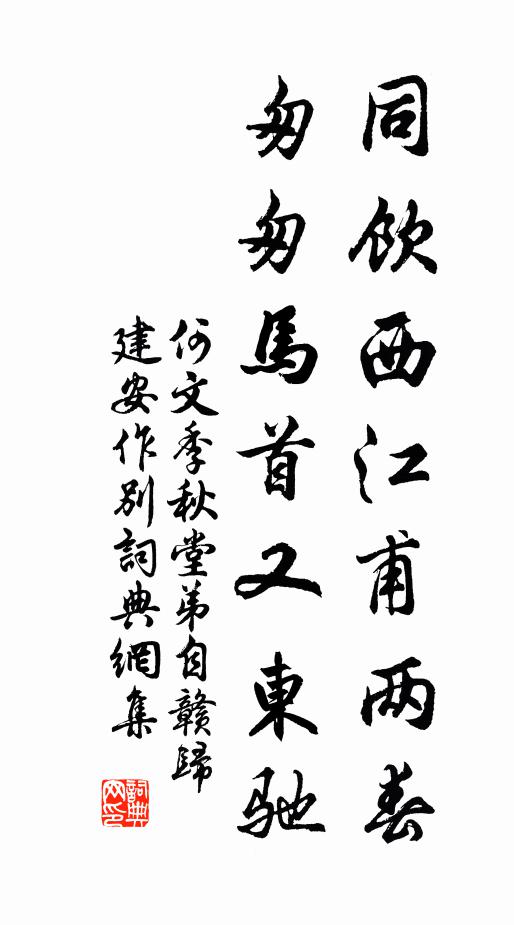 同饮西江甫两春
匆匆馬首又東馳
何文季秋堂弟自贛歸
建安作别詞典網集
詞典
网